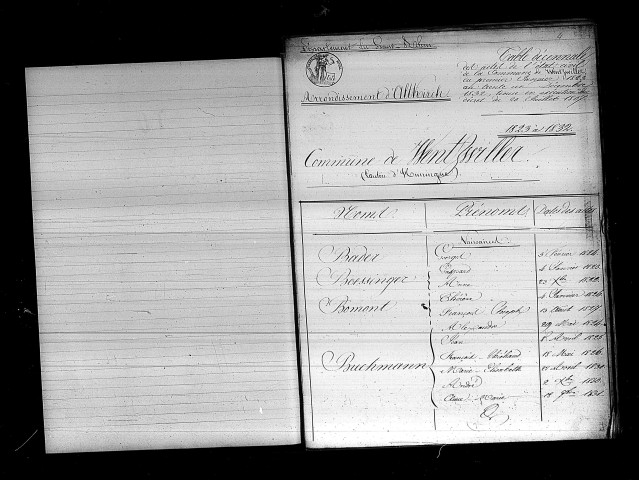 Département du Haut-Rhin
Arrondissement d'Altkirch
Table décennale
des actes de l'état civil
de la Commune de Wentzwiller
du premier Janvier 1823
au trente un Décembre
1832, tenue en exécution du
décret du 20 Juillet 1807.
1823 à 1832.
Commune de Wentzwiller.
(Canton d'Huningue)
Noms. Prénoms. Dates des actes
Naissances.
Bader Georges 5 Février 1824.
Boessinger 4 Janvier 1823.
Marie 20 Xbre
Bomont Thérèse 4 Janvier 1824.
François Joseph 13 Août 1827.
29 Mai 1824.
Jean 8 Avril 1825.
Buchmann François 18 Mai 1826.
Marie Elisabeth Avril 1830.
André 2 Xbre
Marie 18 9bre 1831.